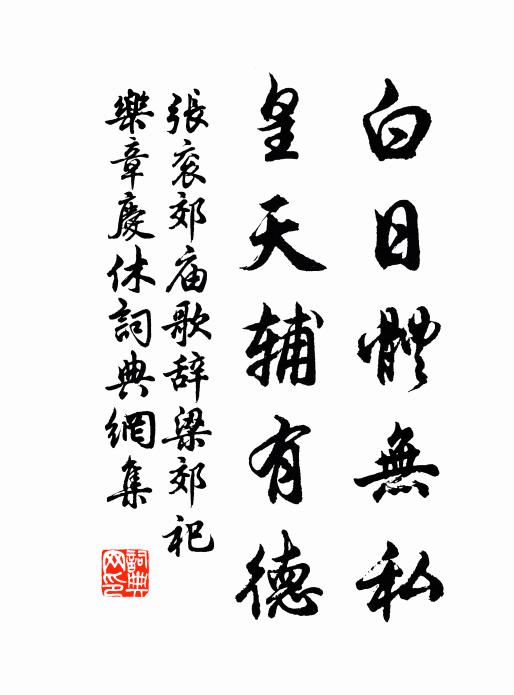 白日體無私
皇天輔有德
張衮郊庙歌辞梁郊祀
樂章慶休詞典網集
詞典网印